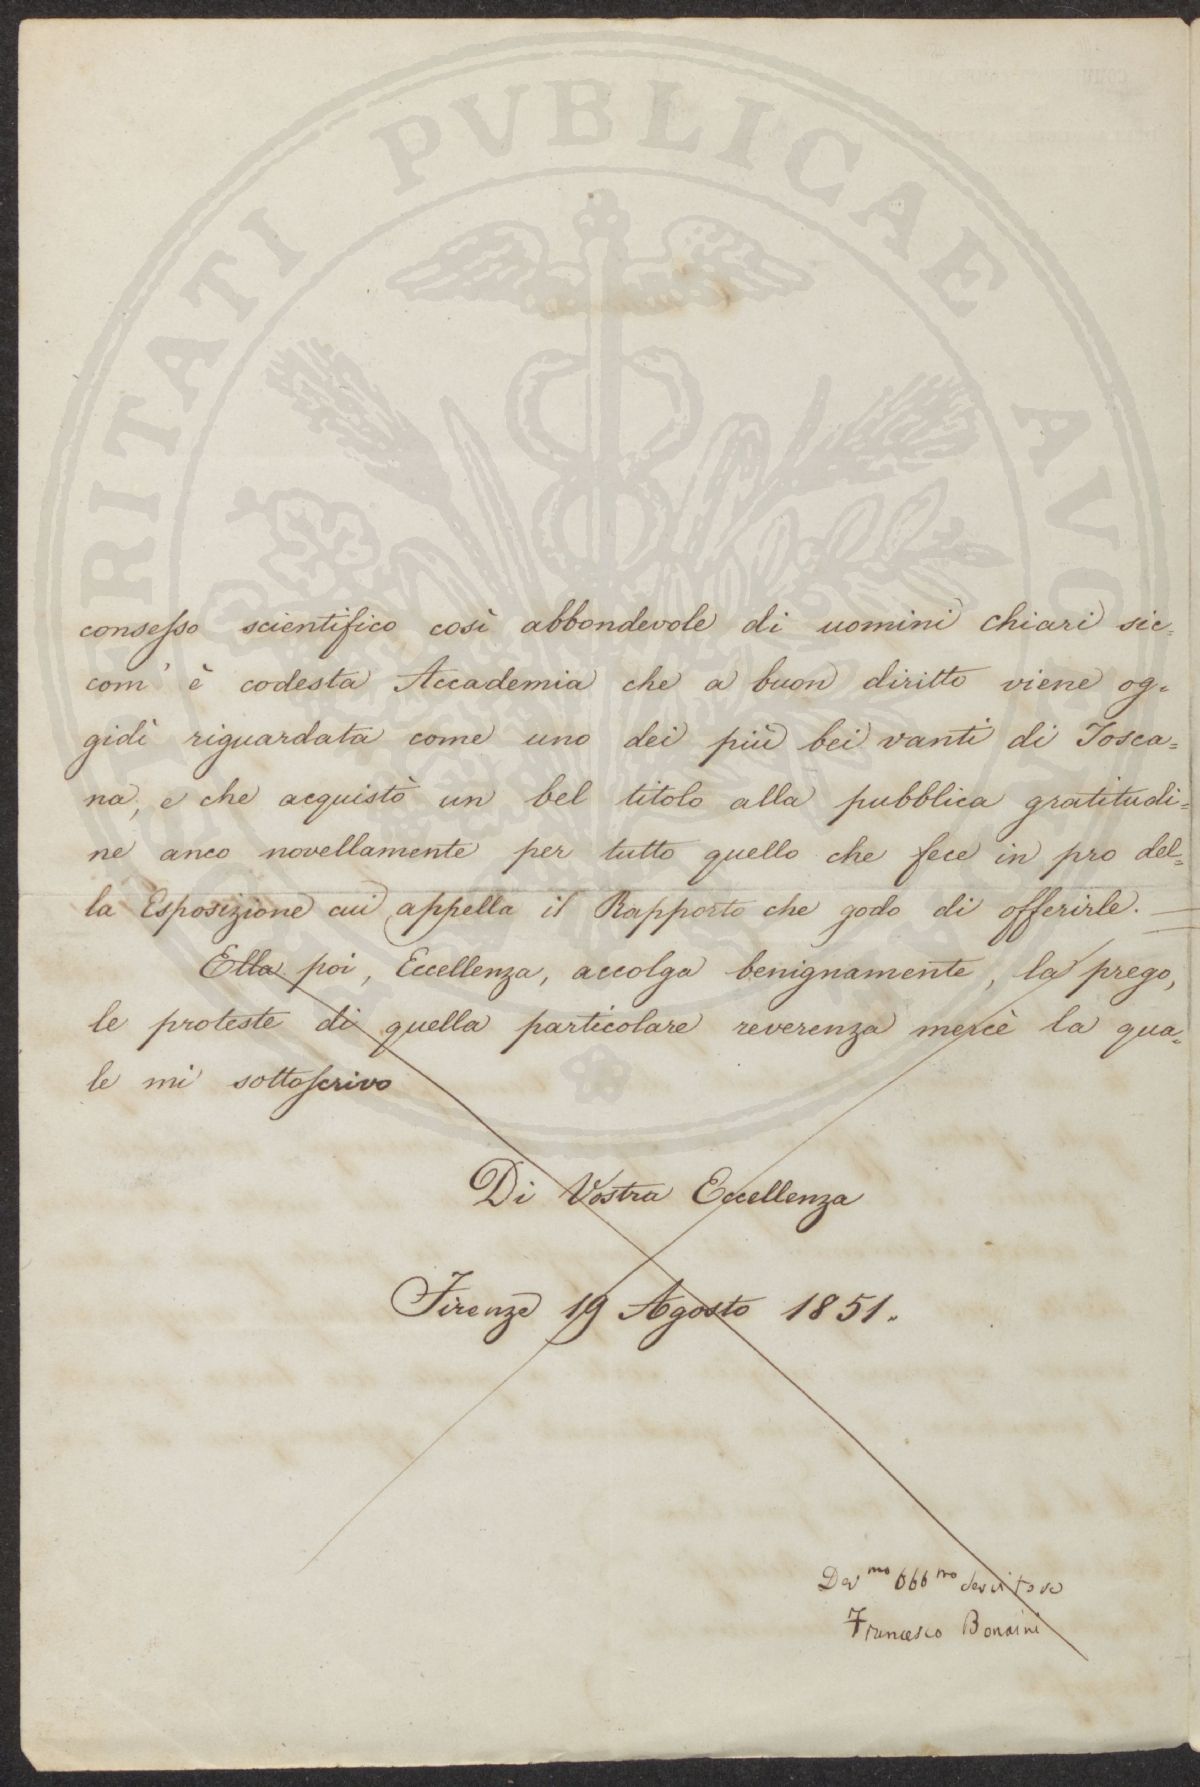 PROSPERITATI PVBLICAE AVGENDAE
consesso scientifico così abbondevole di uomini chiari sic=
com' è codesta Accademia che a buon diritto viene og=
gidì riguardata come uno dei più bei vanti di Tosca=
na, e che acquistò un bel titolo alla pubblica gratitudi=
ne anco novellamente per tutto quello che fece in pro del=
la Esposizione cui appella il Rapporto che godo di offerirle. —
Ella poi, Eccellenza, accolga benignamente, la prego,
le proteste di quella particolare reverenza mercè la qua=
le mi sottoscrivo
Di Vostra Eccellenza
Firenze 19 Agosto 1851.
Dev mo Obb mo servitore
Francesco Bonaini